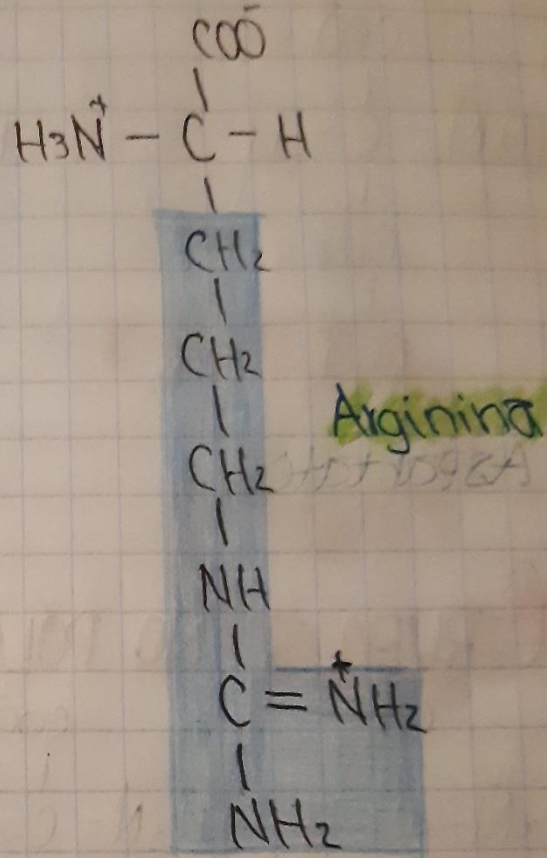 COO⁻
H₃N⁺ – C – H
CH₂
CH₂
Arginina
CH₂
NH
C = N⁺H₂
NH₂